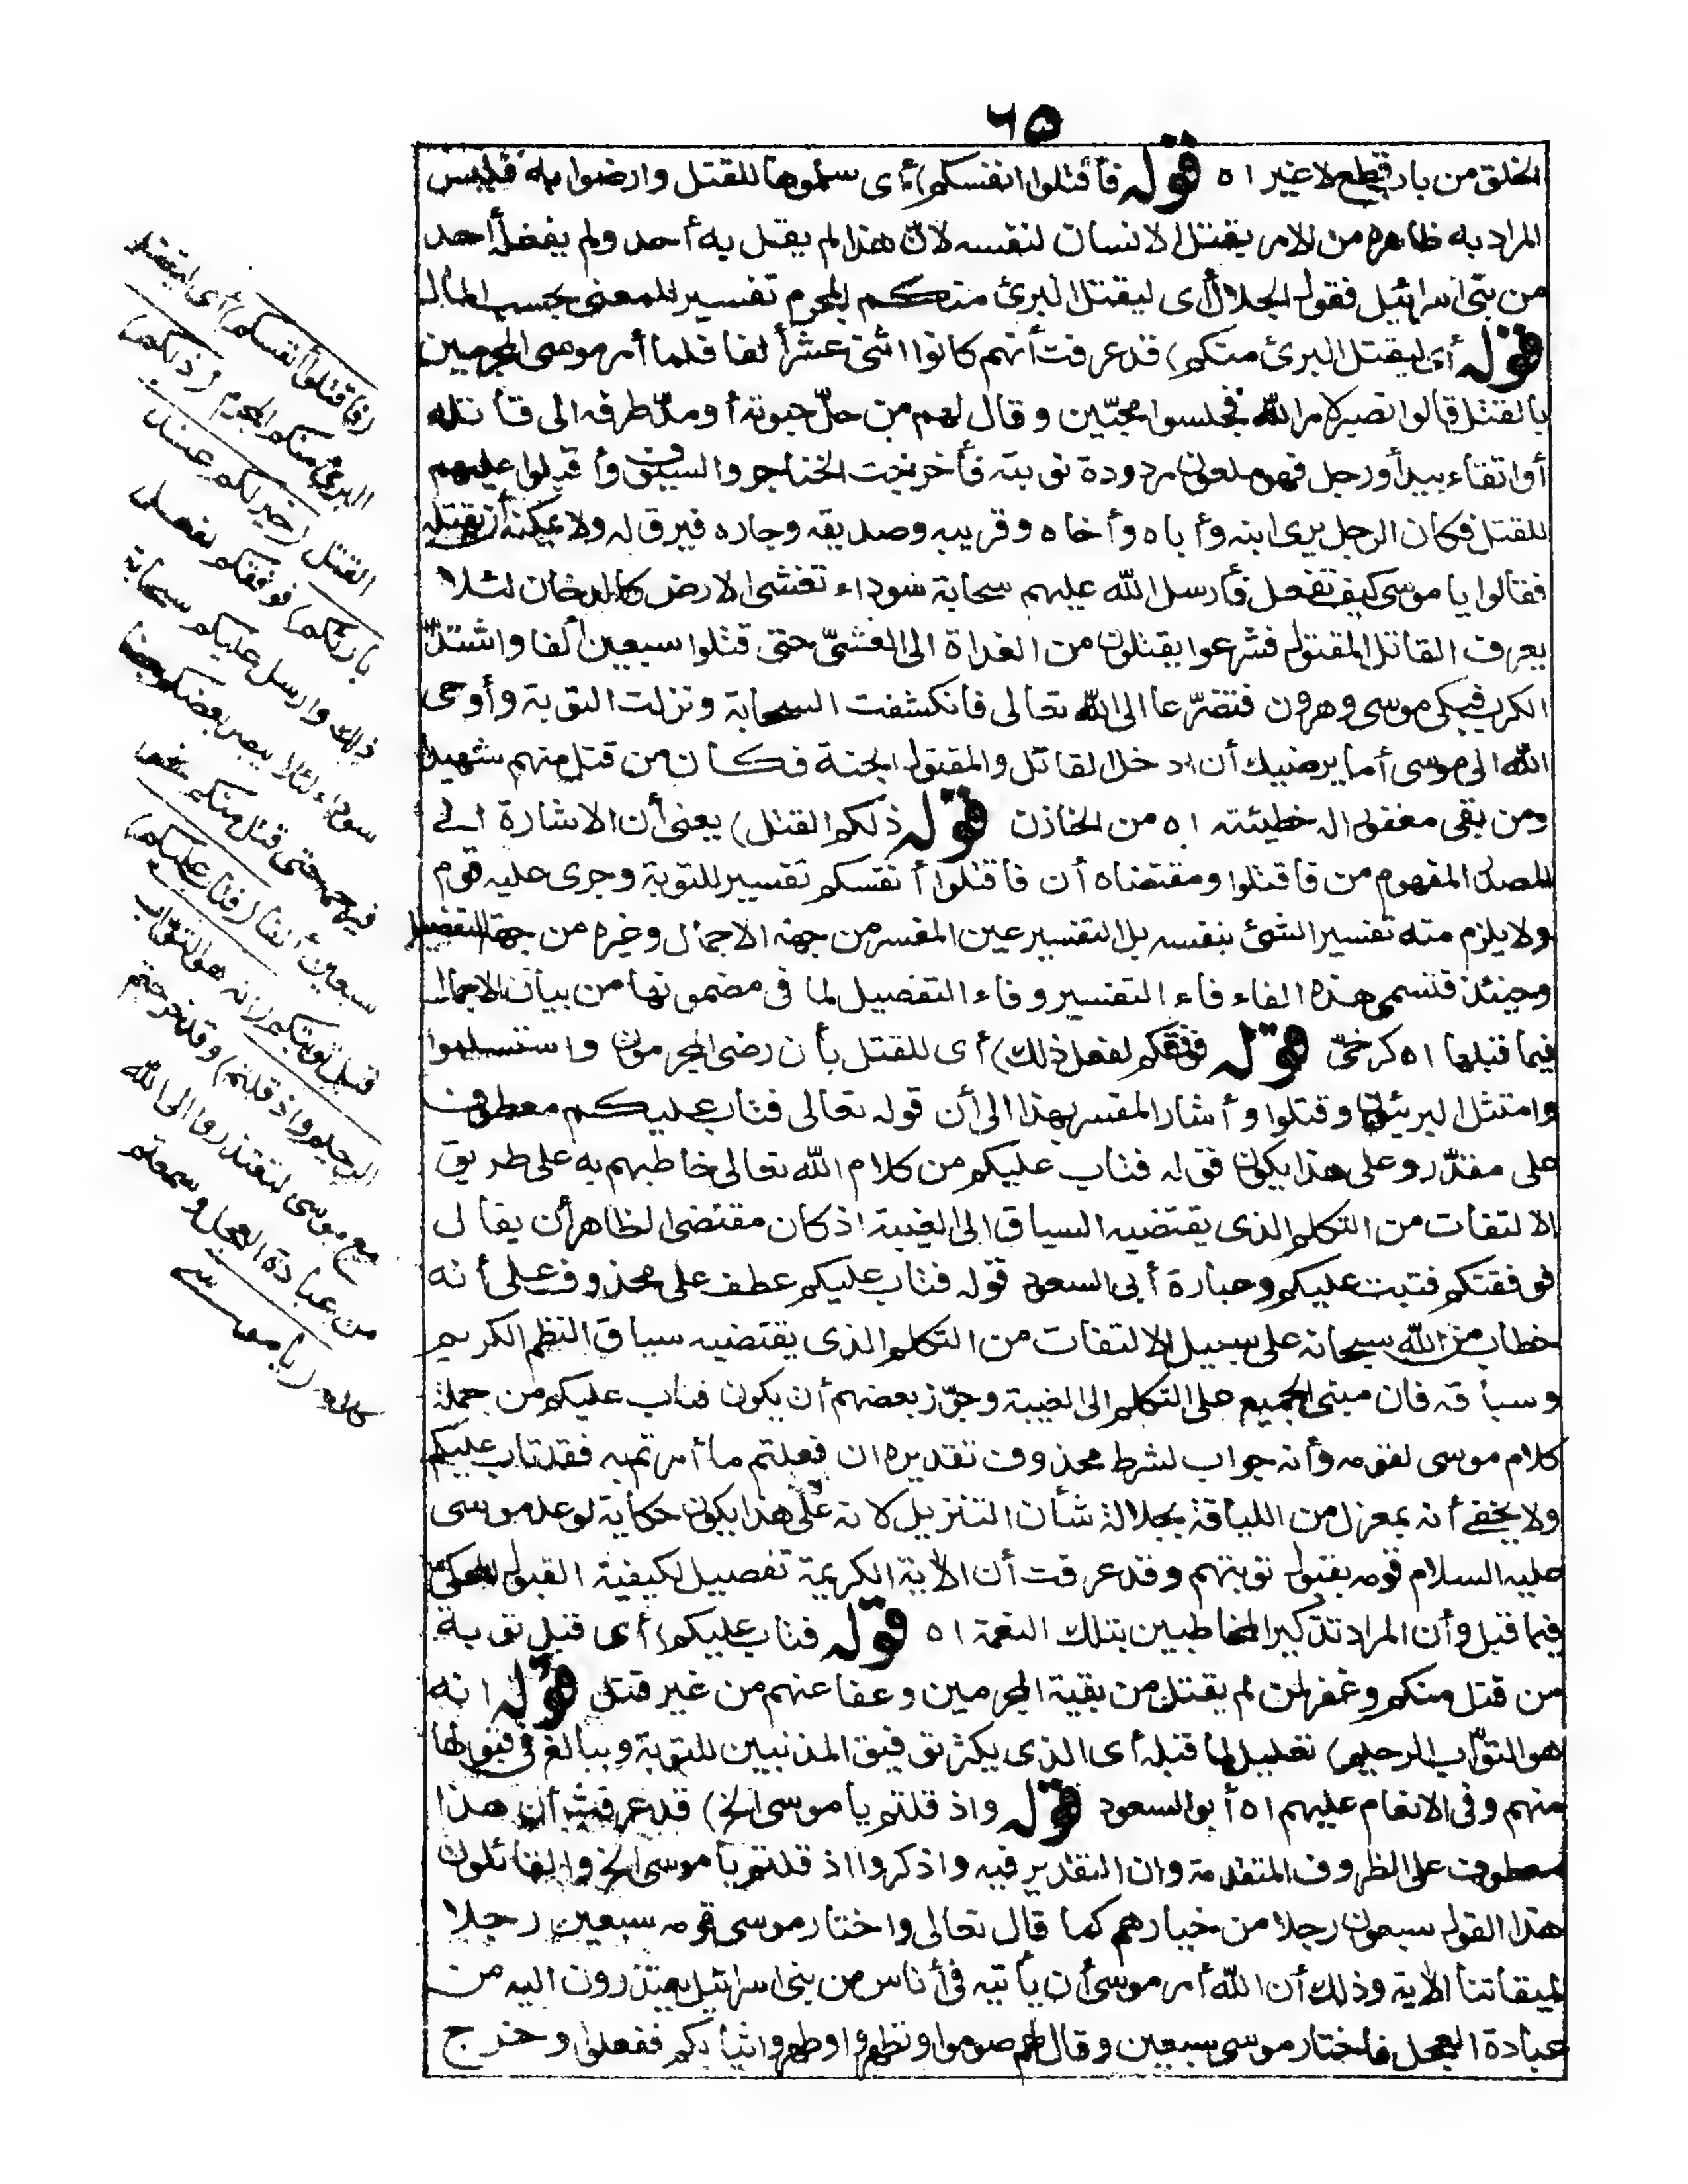 ٦٥
الخلق من باب قطع لا غير ا ه قوله فاقتلوا انفسكم) أى سلموها للقتل وارضوا به فليس
المراد به ظاهره من الامر بقتل الانسان لنفسه لانّ هذا لم يقل به أحد ولم يفعله أحد
من بنى اسرائيل فقول الجلال أى ليقتل البرئ منكم المجرم تفسير للمعنى بحسب المآل
قوله أى ليقتل البرئ منكم) قد عرفت أنهم كانوا اثنى عشر ألفا فلما أمر موسى المجرمين
بالقتل قالوا نصبر لامر الله فجلسوا محتبين وقال لهم من حلّ حبوته أو مدّ طرفه الى قاتله
أو اتقاه بيد أو رجل فهو ملعون مردودة توبته فأخرجت الخناجر والسيوف وأقبلوا عليهم
للقتل فكان الرجل يرى ابنه وأباه وأخاه وقريبه وصديقه وجاره فيرق له ولا يمكنه أن يقتله
فقالوا يا موسى كيف نفعل فأرسل الله عليهم سحابة سوداء تغشى الارض كالدخان لئلا
يعرف القاتل المقتول فشرعوا يقتلون من الغداة الى العشىّ حتى قتلوا سبعين ألفا واشتدّ
الكرب فبكى موسى وهرون فتضرّعا الى الله تعالى فانكشفت السحابة ونزلت التوبة وأوحى
الله الى موسى أما يرضيك أن ادخل القاتل والمقتول الجنة فكان من قتل منهم شهيدا
ومن بقى مغفورا له خطيئته ا ه من الخازن قوله ذلكم القتل) يعنى أن الاشارة الى
المصدر المفهوم من فاقتلوا ومقتضاه أن فاقتلوا أنفسكم تفسير للتوبة وجرى عليه قوم
ولا يلزم منه تفسير الشئ بنفسه بل التفسير عين المفسر من جهة الاجمال وغيره من جهة التفصيل
وحينئذ فتسمى هذه الفاء فاء التفسير وفاء التفصيل لما فى مضمونها من بيان الاجمال
فيما قبلها ا ه كرخىّ قوله فوفقكم لفعل ذلك) أى للقتل بأن رضى المجرمون واستسلموا
وامتثل البريئون وقتلوا وأشار المفسر بهذا الى أن قوله تعالى فتاب عليكم معطوف
على مقدّر وعلى هذا يكون قوله فتاب عليكم من كلام الله تعالى خاطبهم به على طريق
الالتفات من التكلم الذى يقتضيه السياق الى الغيبة اذ كان مقتضى الظاهر أن يقال
فوفقتكم فتبت عليكم وعبارة أبى السعود قوله فتاب عليكم عطف على محذوف على أنه
خطاب من الله سبحانه على سبيل الالتفات من التكلم الذى يقتضيه سباق النظم الكريم
وسياقه فان مبنى الجميع على التكلم الى الغيبة وجوّز بعضهم أن يكون فتاب عليكم من جملة
كلام موسى لقومه وأنه جواب لشرط محذوف تقديره ان فعلتم ما أمرتم به فقد تاب عليكم
ولا يخفى أنه بمعزل من اللياقة بجلالة شأن التنزيل لانه على هذا يكون حكاية لوعد موسى
عليه السلام قومه بقبول توبتهم وقد عرفت أن الآية الكريمة تفصيل لكيفية القبول المحكىّ
فيما قبل وأن المراد تذكير المخاطبين بتلك النعمة ا ه قوله فتاب عليكم) أى قبل توبة
من قتل منكم وغفر لمن لم يقتل من بقية المجرمين وعفا عنهم من غير قتل قوله انه
هو التوّاب الرحيم) تعليل لما قبله أى الذى يكثر توفيق المذنبين للتوبة ويبالغ فى قبولها
منهم وفى الانعام عليهم ا ه أبو السعود قوله واذ قلتم يا موسى الخ) قد عرفت أن هذا
معطوف على الظروف المتقدمة وان التقدير فيه واذكروا اذ قلتم يا موسى الخ والقائلون
هذا القول سبعون رجلا من خيارهم كما قال تعالى واختار موسى قومه سبعين رجلا
لميقاتنا الآية وذلك أن الله أمر موسى أن يأتيه فى أناس من بنى اسرائيل يعتذرون اليه من
عبادة العجل فاختار موسى سبعين وقال لهم صوموا وتطهروا وطهروا ثيابكم ففعلوا وخرج
(فاقتلوا أنفسكم) أى ليقتل
البرئ منكم المجرم (ذلكم)
القتل (خير لكم عند
بارئكم) فوفقكم لفعل
ذلك وارسل عليكم سحابة
سوداء لئلا يبصر بعضكم بعضا
فيرحمه حتى قتل منكم نحو
سبعين ألفا (فتاب عليكم)
قبل توبتكم (انه هو التوّاب
الرحيم واذ قلتم) وقد خرجتم
مع موسى لتعتذروا الى الله
من عبادة العجل وسمعتم
كلامه (يا موسى